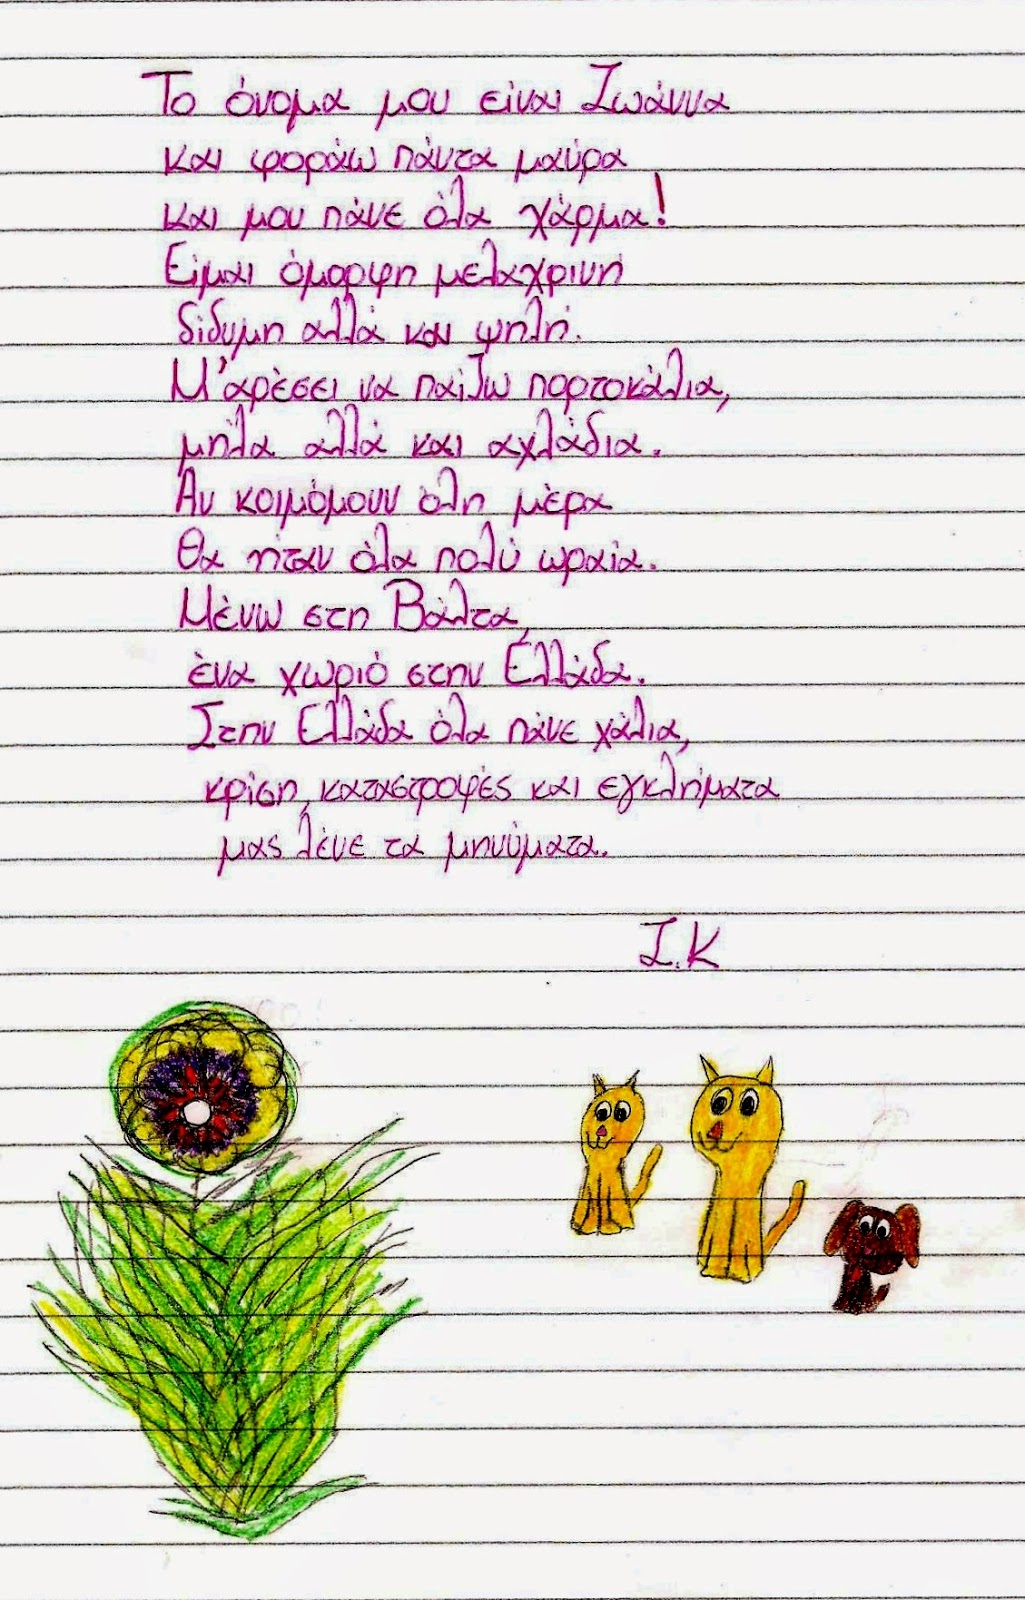 Το όνομα μου είναι Ιωάννα
και φοράω πάντα μαύρα
και μου πάνε όλα χάρμα!
Είμαι όμορφη μελαχρινή
δίδυμη αλλά και ψηλή.
Μ'αρέσει να παίζω πορτοκάλια,
μήλα αλλά και αχλάδια.
Αν κοιμόμουν όλη μέρα
Θα ήταν όλα πολύ ωραία.
Μένω στη Βάλτα,
ένα χωριό στην Ελλάδα.
Στην Ελλάδα όλα πάνε χάλια,
κρίση, καταστροφές και εγκλήματα
μας λένε τα μηνύματα.
Ι.Κ